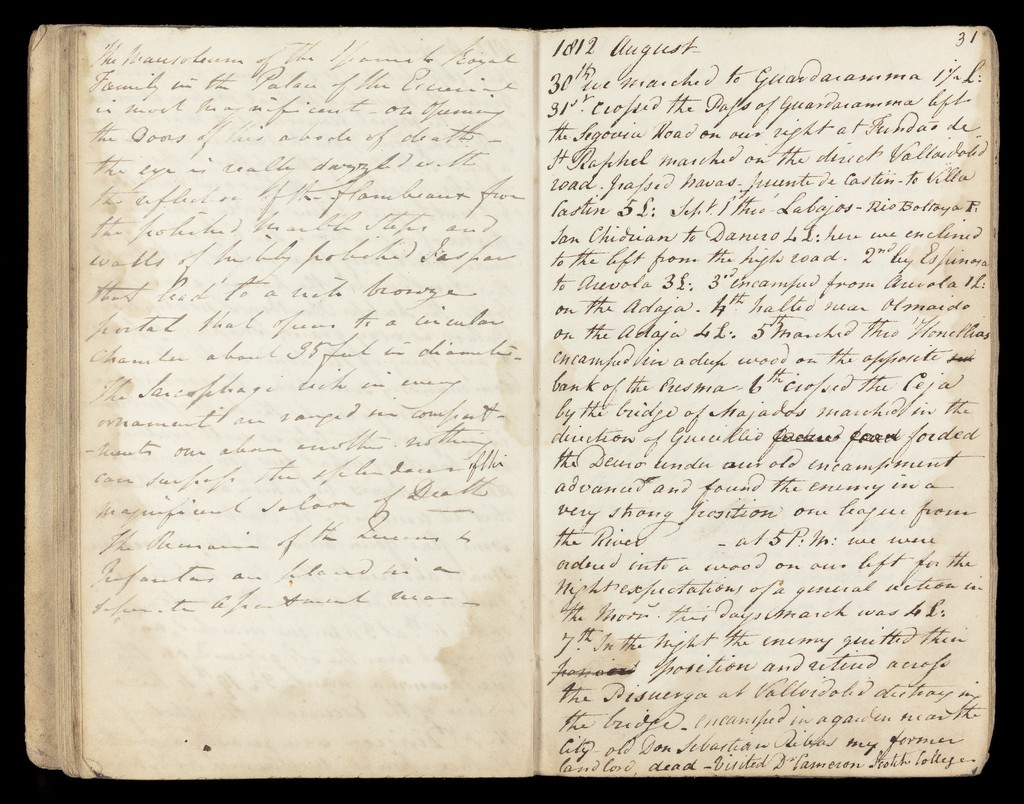 The Mausoleum of the Spanish Royal
Family in the Palace of the Escurial
is most magnificent - on opening
the Doors of this abode of death -
the eye is really dazzled with
the reflection of the flambeaux from
the polished Marble Steps and
walls of highly polished Jasper
that lead to a rich bronze
portal that opens to a circular
Chamber about 35 feet in diameter -
The Sarcophagi rich in every
ornament are ranged in compart-
-ments one above another. nothing
can surpass the splendour of this
magnificent Saloon of Death
The Remains of the Queens &
Infantas are placed in a
separate apartment near -
31
1812 August
30th we marched to Guardaramma 1½ L:
31st crossed the Pass of Guardaramma left
the Segovia Road on our right at Fundas de
St Raphel marched on the direct Valloidolid
road. passed Navas - puente de Castin - to Villa
Castin 5 L: Sept. 1st thro' Labajos - Rio Boltoya P.
San Chidrian to Danero 4 L: here we enclined
to the left from the high road. 2nd by Espinosa
to Arevola 3 L: 3rd encamped from Arevola 1 L:
on the Adaja. 4th halted near Olmaido
on the Adaja 4 L: 5th marched thro' Honellias
encamped in a deep wood on the opposite
bank of the Eresma 6th crossed the Ceja
by the bridge of Majados marched in the
direction of forded
the Deuro under our old encampment
advanced and found the enemy in a
very strong position one league from
the River - at 5 P:M: we were
ordered into a wood on our left for the
Night expectations of a general action in
the Morng. this days march was 4 L:
7th In the Night the enemy quitted their
position and retired across
the Pisuerga at Valloidolid destroying
the bridge. encamped in a garden near the
City - old Don Sebastian Ribas my former
landlord, dead - Visited Dr Cameron Scotch College